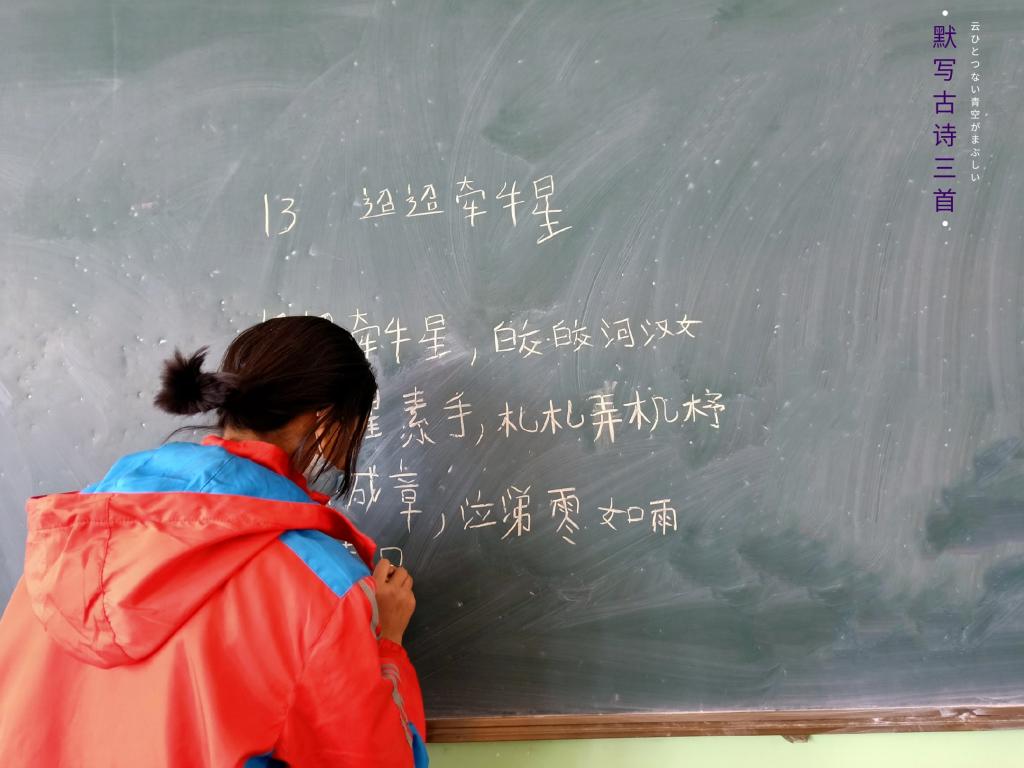 云ひとつない青空がまぶしい
默写古诗三首
13 迢迢牵牛星
牵牛星,皎皎河汉女
素手,札札弄机杼
成章,泣涕零如雨